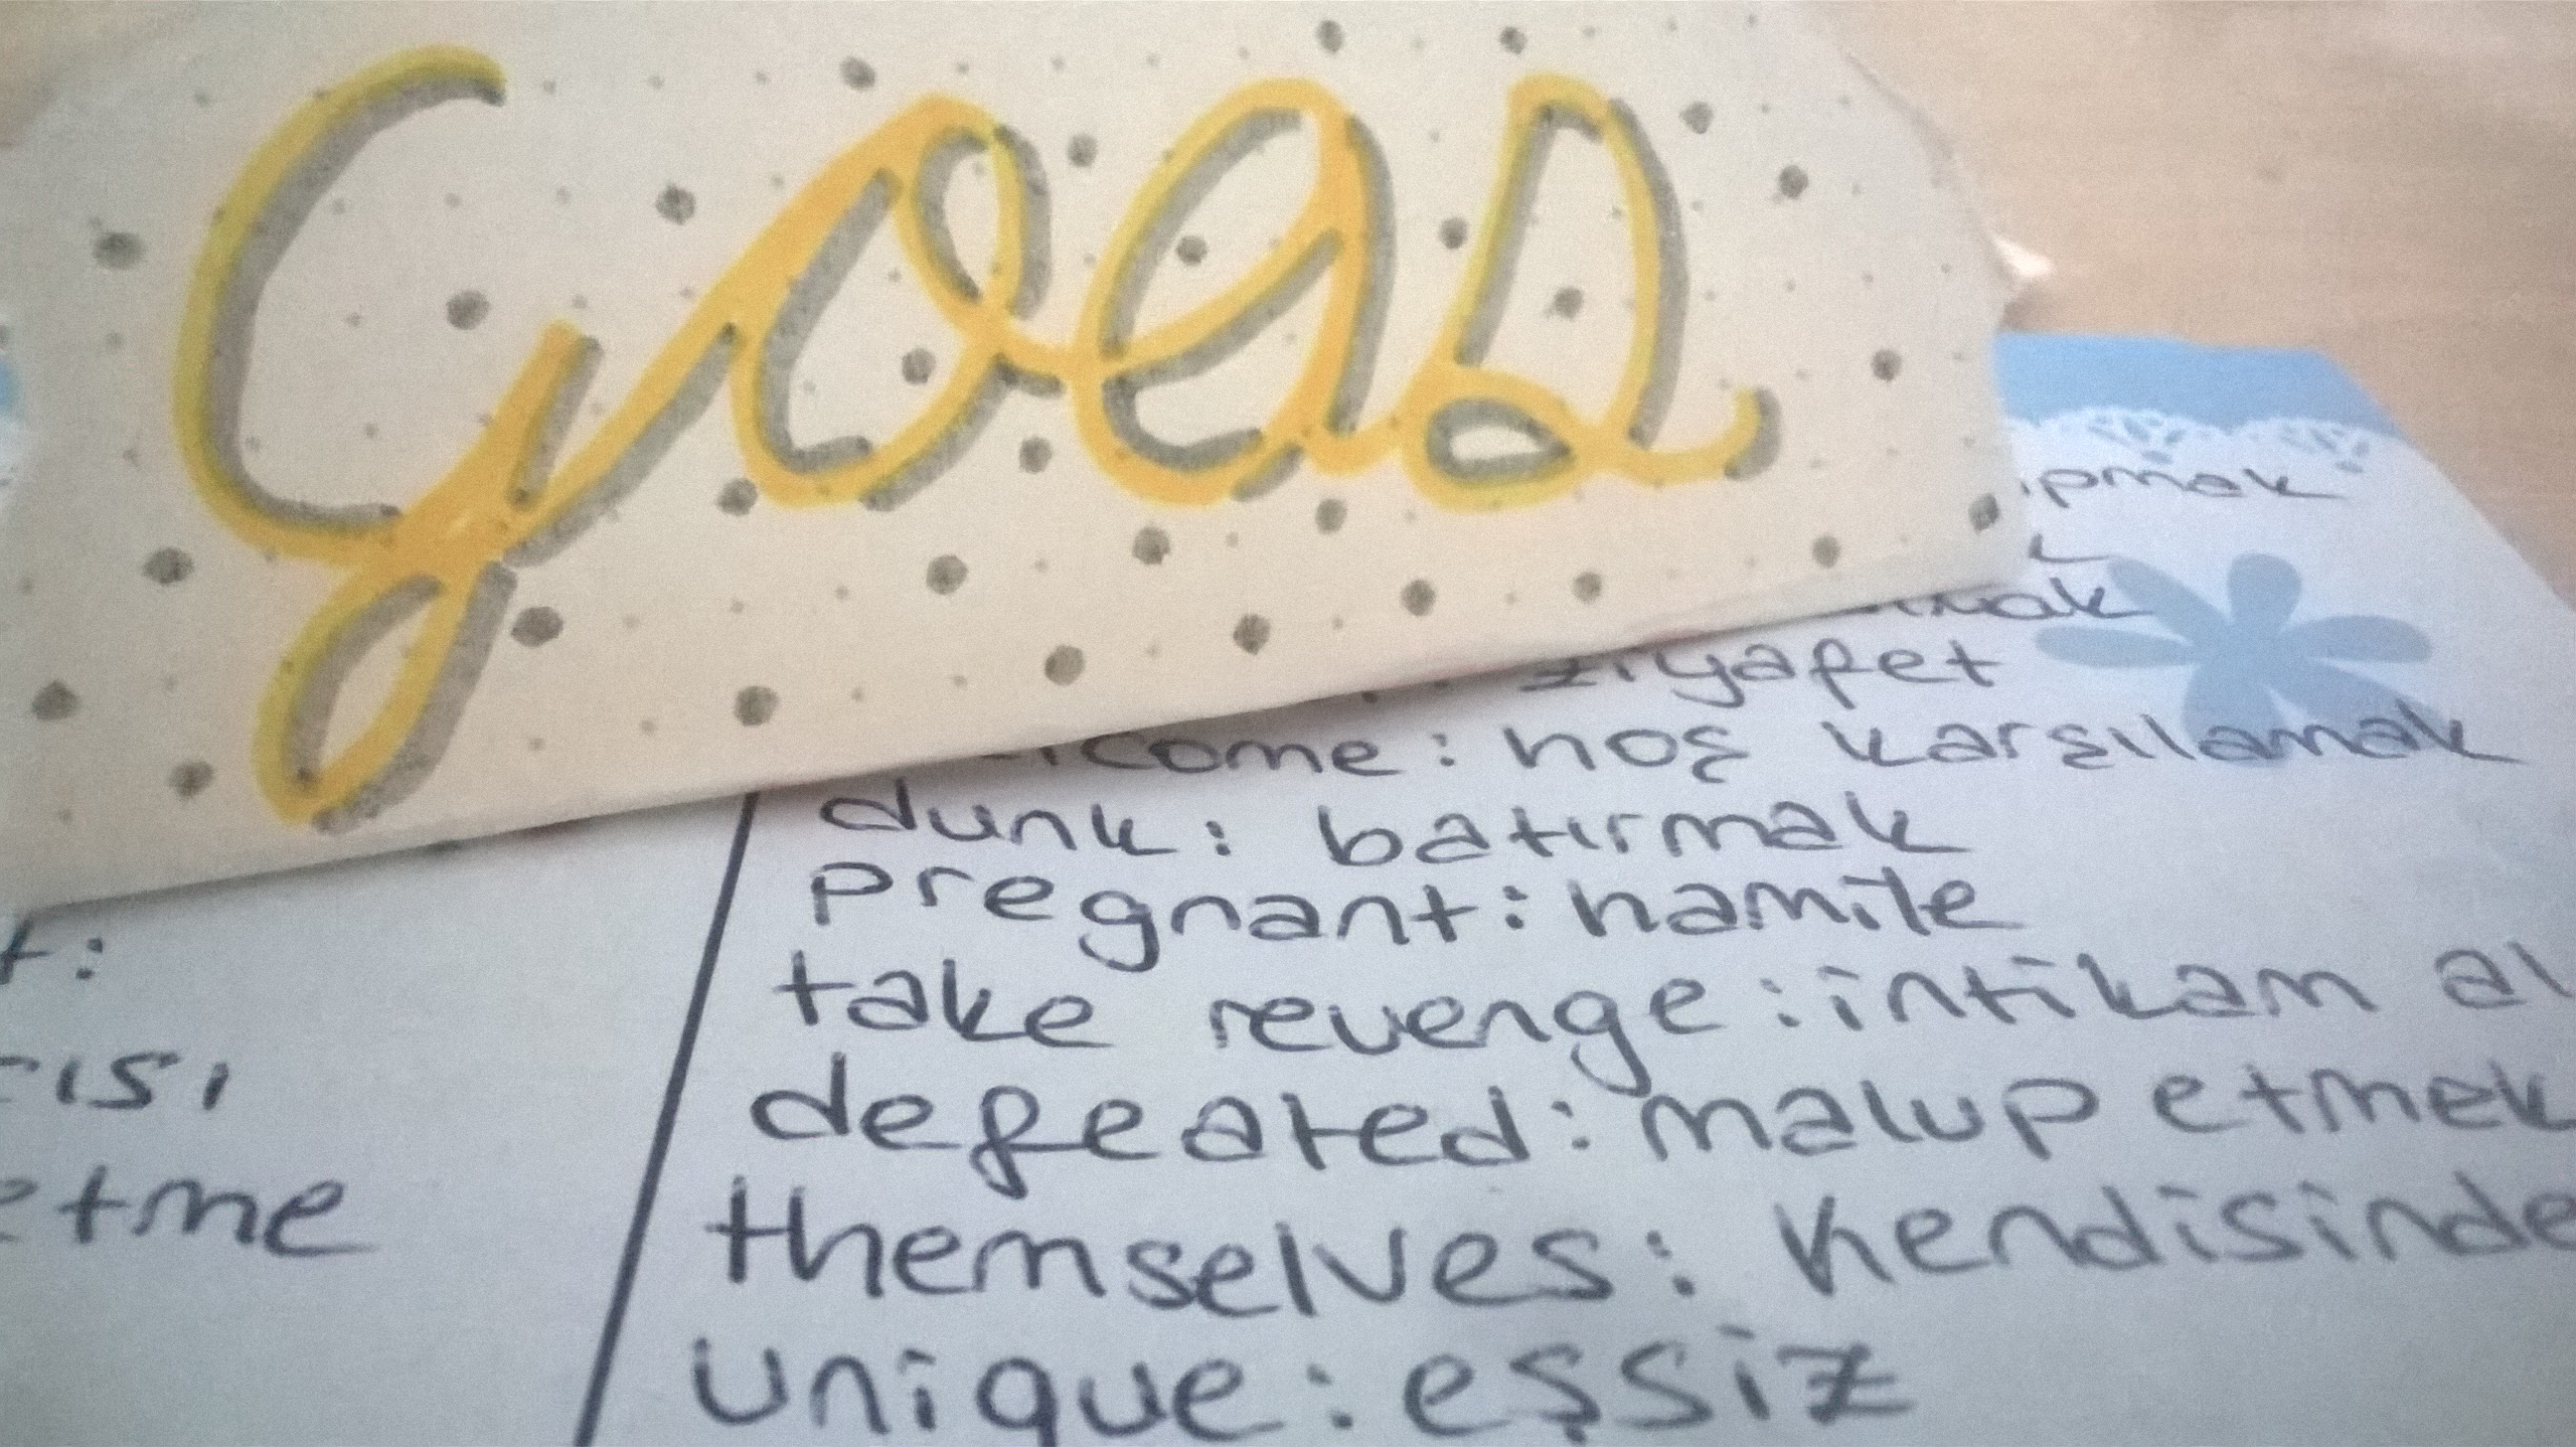 ziyafet
come: hoş karşılamak
dunk: batırmak
pregnant: hamile
take revenge: intikam al
defeated: malup etmek
themselves: kendisinde
unique: eşsiz
t:
ısı
etme